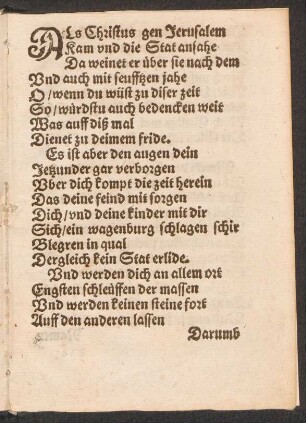 ALs Christus gen Jerusalem
Kam vnd die Stat ansahe
Da weinet er über sie nach dem
Vnd auch mit seufftzen jahe
O/wenn du wüst zu diser zeit
So/würdstu auch bedencken weit
Was auff diß mal
Dienet zu deimem fride.
Es ist aber den augen dein
Jetzunder gar verborgen
Vber dich kompt die zeit herein
Das deine feind mit sorgen
Dich/vnd deine kinder mit dir
Sich/ein wagenburg schlagen schir
Blegren in qual
Dergleich kein Stat erlide.
Vnd werden dich an allem ort
Engsten schleüffen der massen
Vnd werden keinen steine fort
Auff den anderen lassen
Darumb